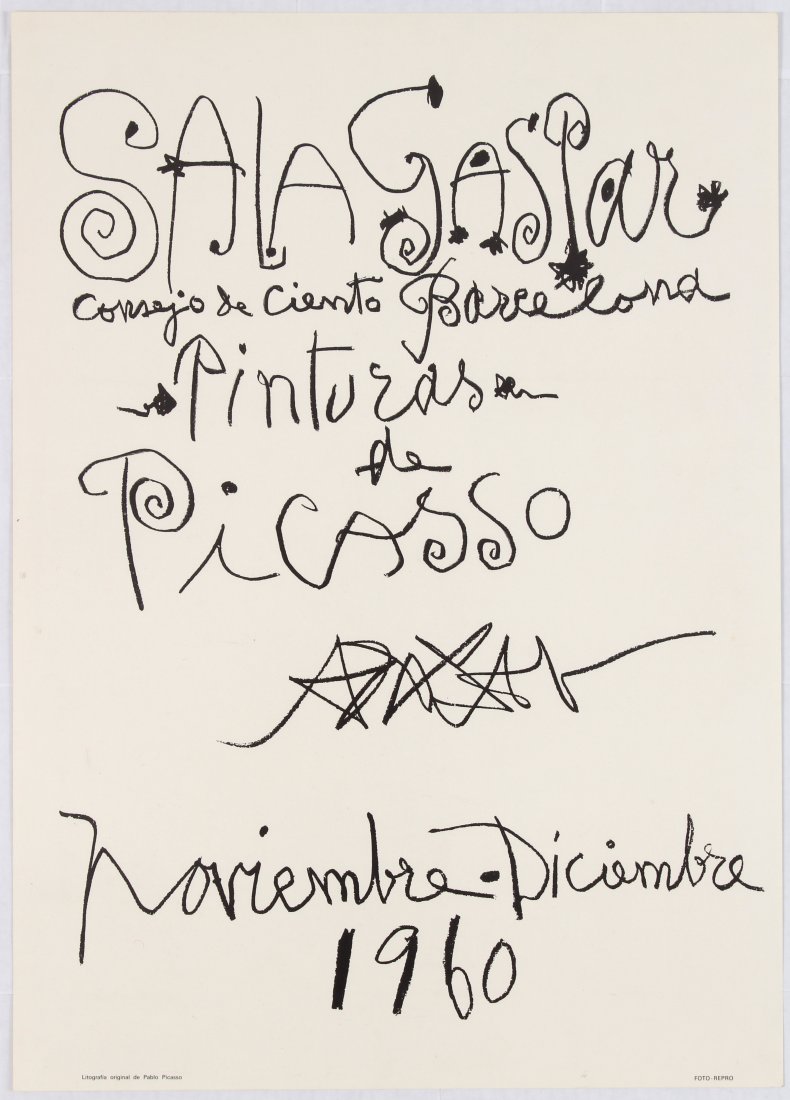 SALA GASPar
Consejo de Ciento Barcelona
Pinturas
de
Picasso
Noviembre-Diciembre
1960
Litografía original de Pablo Picasso
FOTO-REPRO